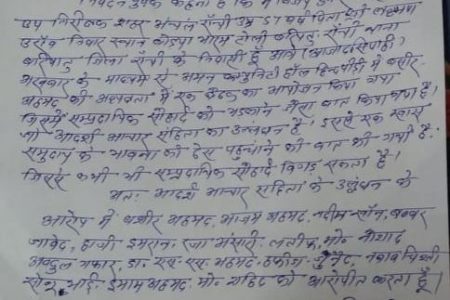 निवेदन पूर्वक कहना है कि मैं
उप निरीक्षक शहर अंचल राँची उम्र 51 वर्ष पिता श्री लक्ष्मण
उराँव निवास स्थान कोड़पा टोली बरियातु राँची थाना
बरियातु जिला राँची के निवासी हूँ आज (आजाद सिपाही)
अखबार के माध्यम से अमन कम्युनिटी हॉल हिन्दपीढ़ी में बशीर
अहमद की अध्यक्षता में एक बैठक का आयोजन किया गया
जिसमें सम्प्रदायिक सौहार्द को भड़काने जैसा बात किया गया है।
जो आदर्श आचार संहिता का उल्लंघन है। इससे एक खास
समुदाय के भावना को ठेस पहुंचाने की बात की गयी है।
जिससे कभी भी सम्प्रदायिक सौहार्द बिगड़ सकता है।
अतः आदर्श आचार संहिता के उलंघन के
आरोप में बशीर अहमद, आजम अहमद, नदीम खॉन, बब्बर
जावेद, हाजी इमरान रजा अंसारी, लतीफ, मो० नौशाद
अब्दुल गफार, डा० एस० एस० अहमद, हफीज जुनैद, नवाब चिश्ती
सोनू भाई, इमाम अहमद, मो० शहिद को आरोपीत करता हूँ।